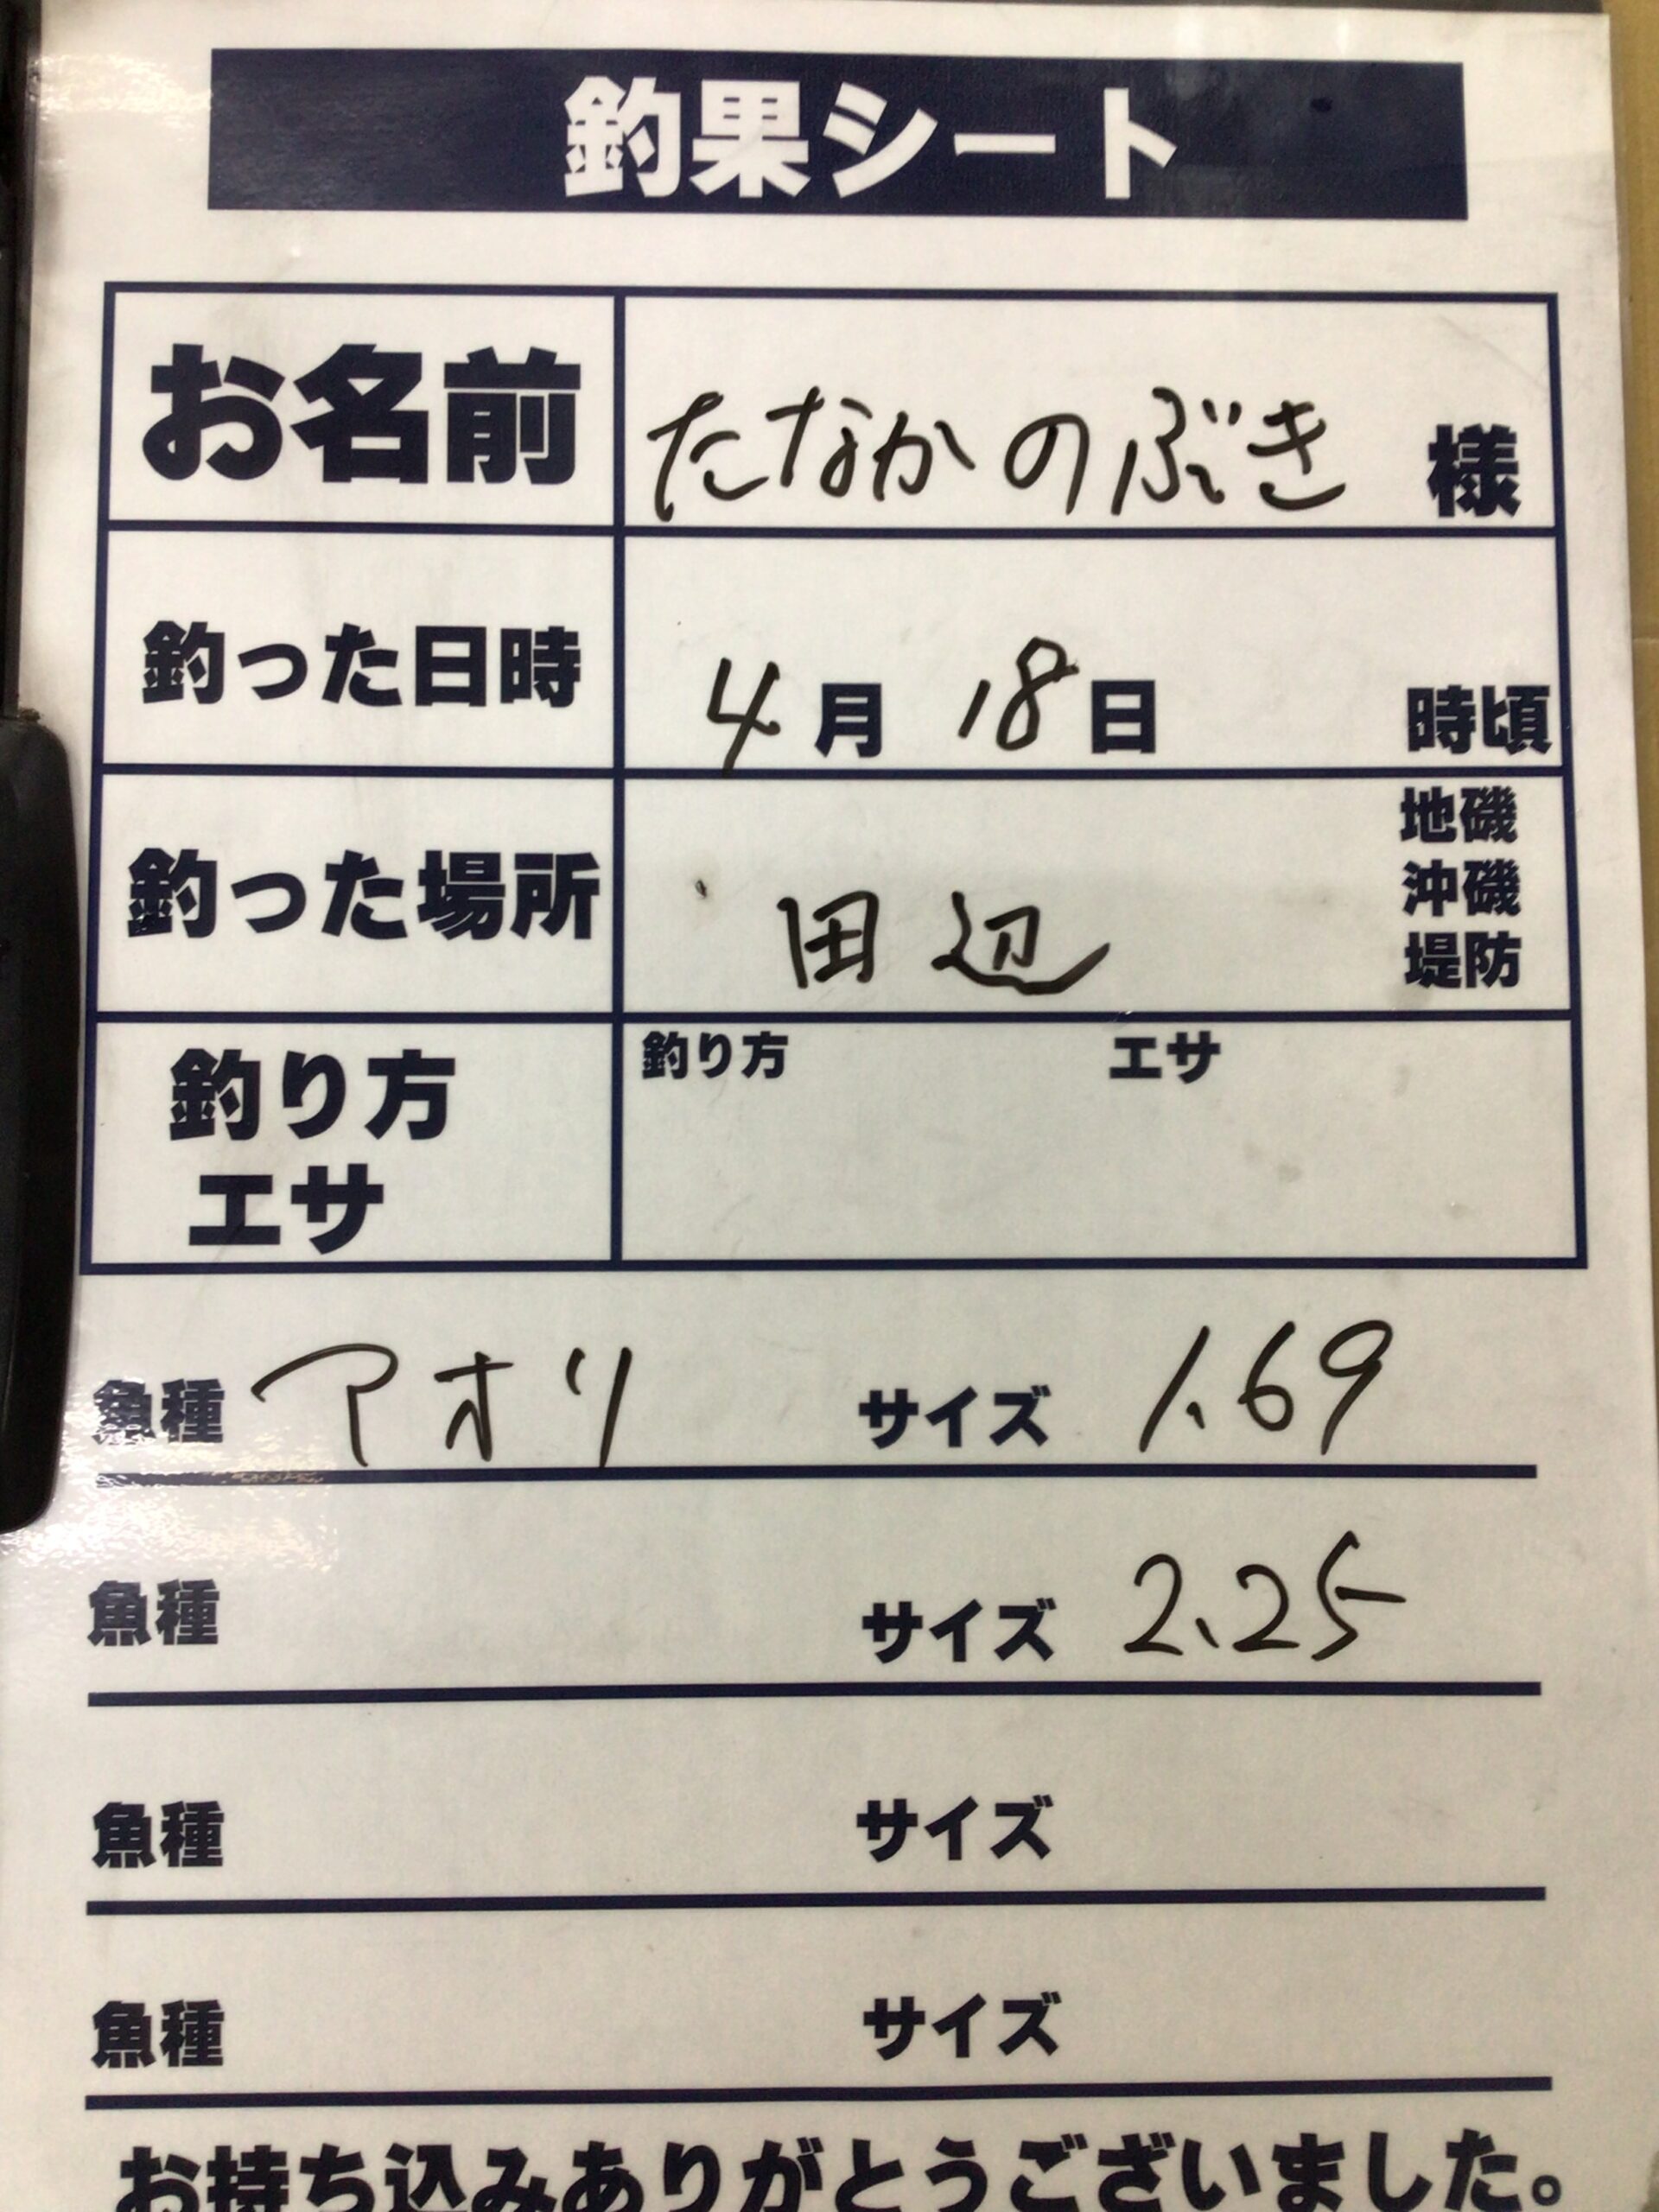 釣果シート
お名前 たなかのぶき 様
釣った日時 4月 18日 時頃
釣った場所 田辺 地磯
沖磯
堤防
釣り方 エサ
釣り方
エサ
魚種 アオリ サイズ 1.69
魚種 サイズ 2.25
魚種 サイズ
魚種 サイズ
お持ち込みありがとうございました。